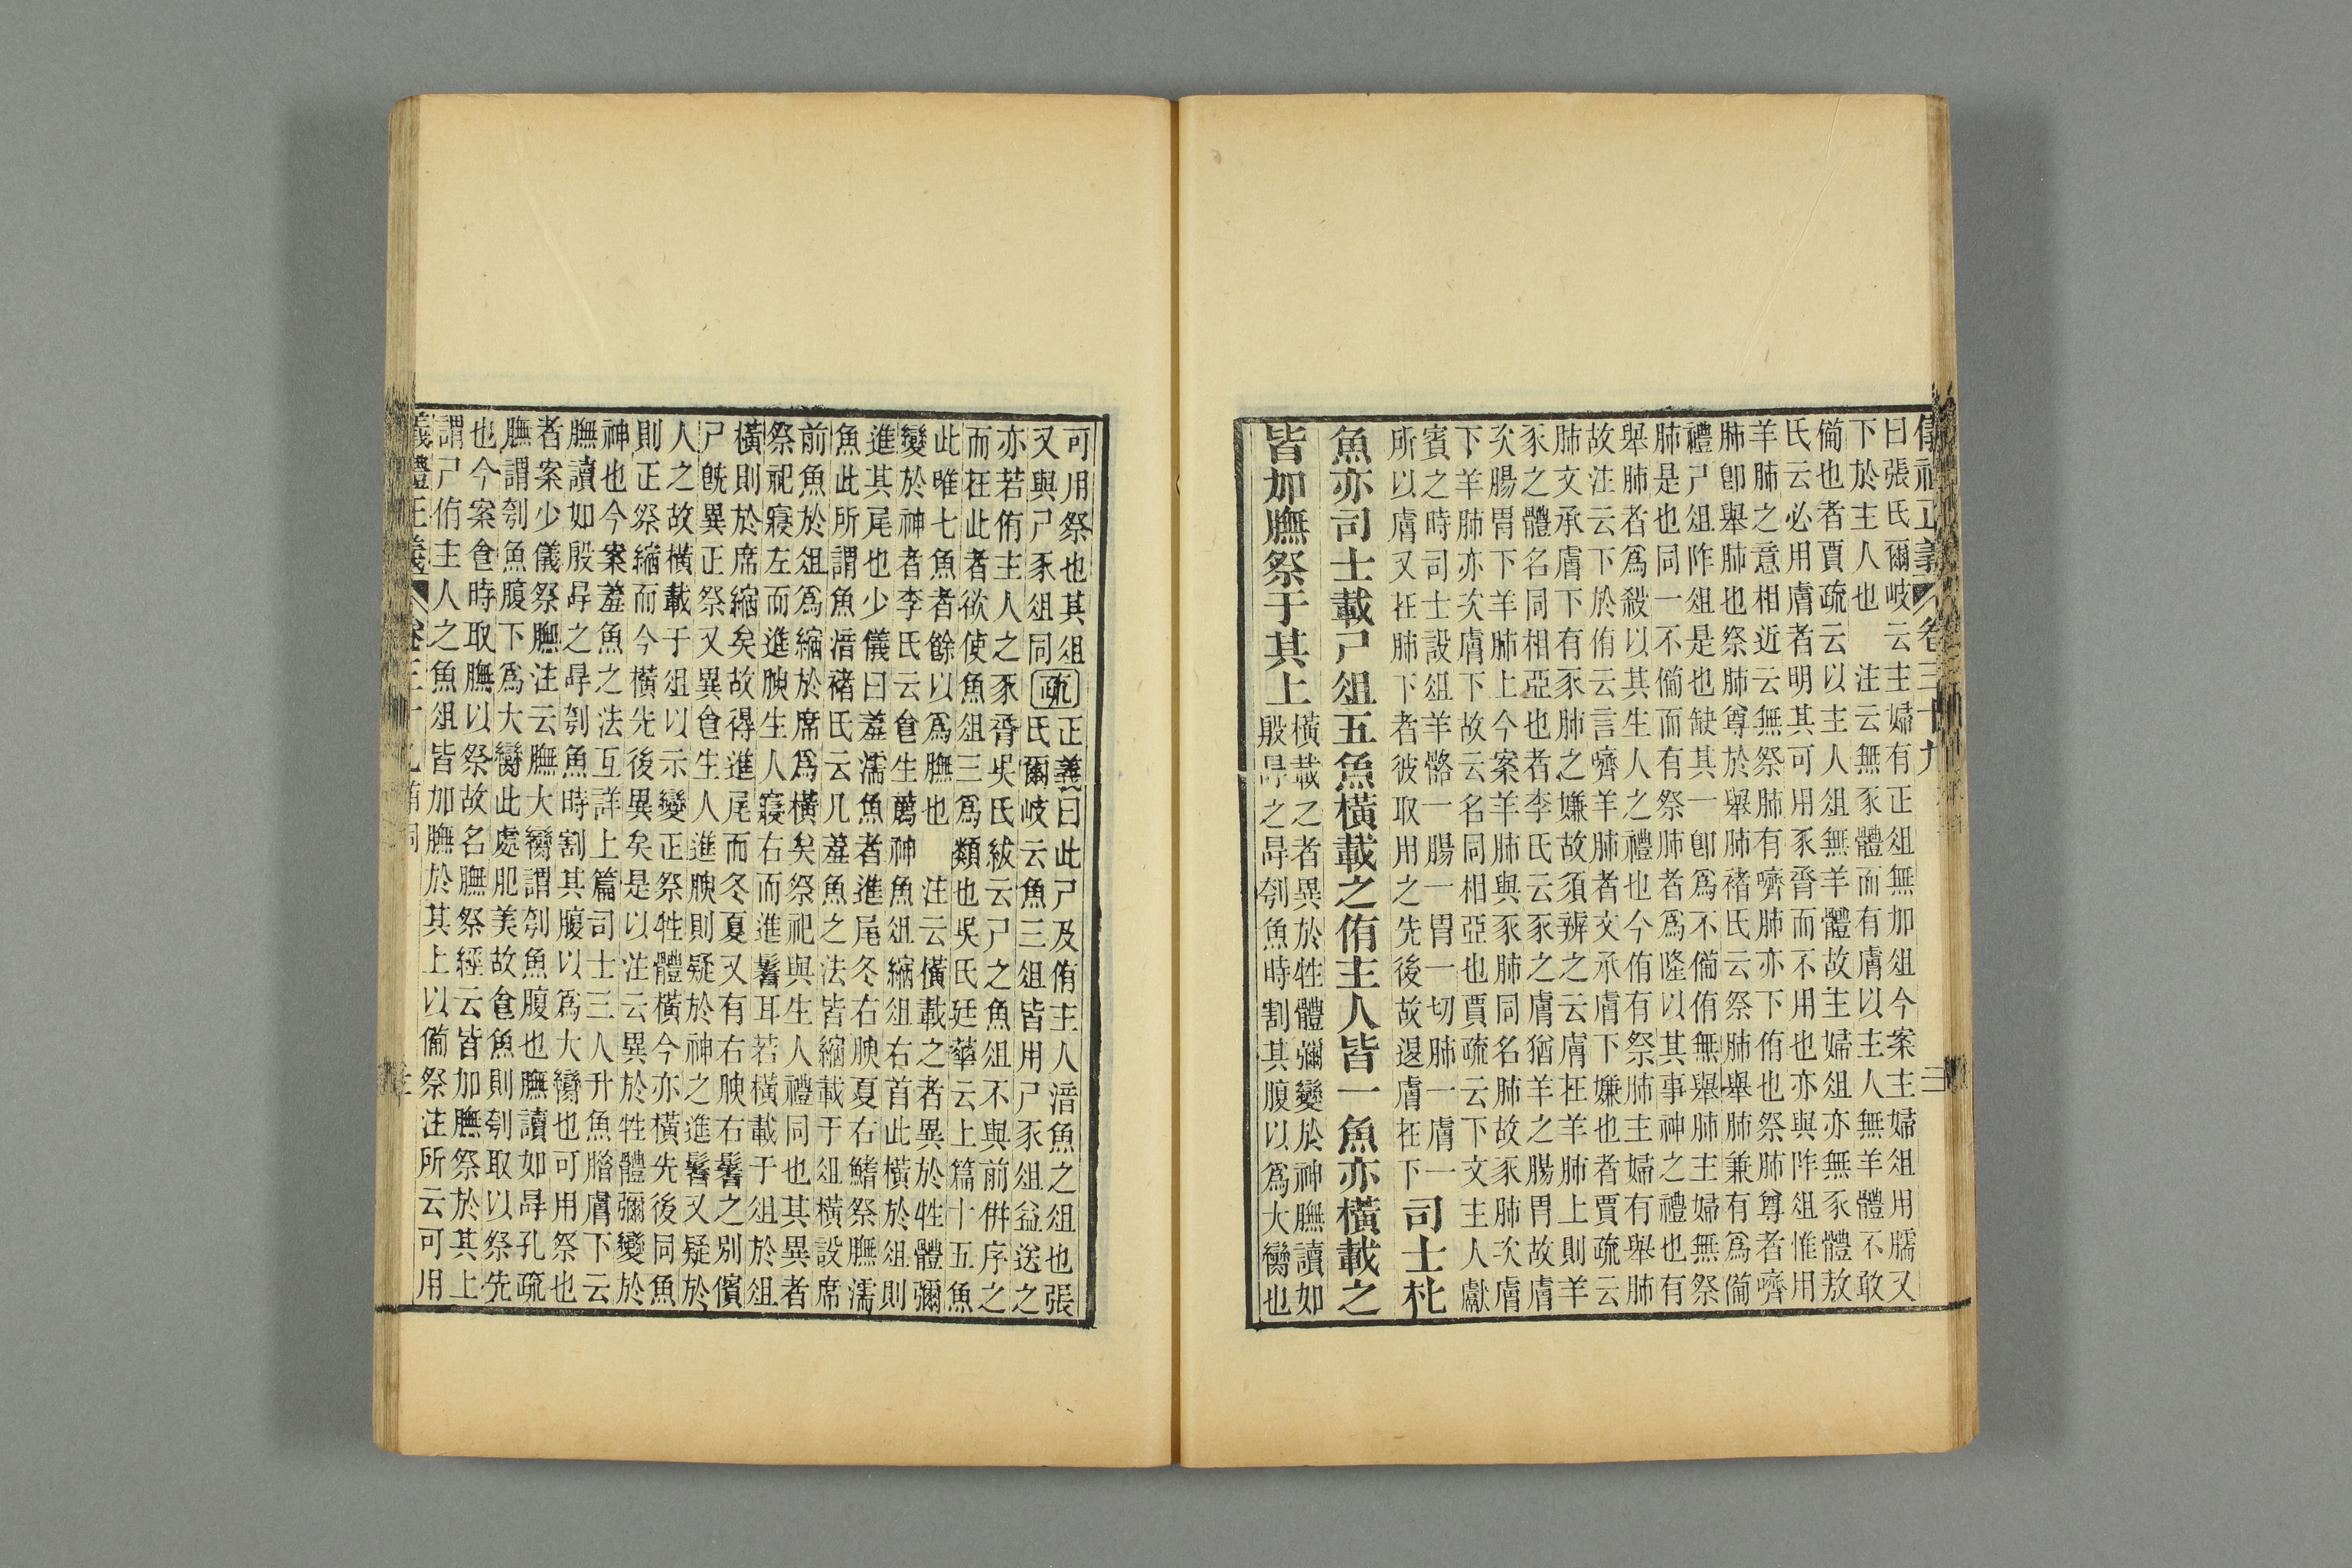 儀禮正義 卷三十九 三
曰張氏爾岐云主婦有正俎無加俎今案主婦俎用臑又
下於主人也 注云無豕體而有膚以主人無羊體不敢
備也者賈疏云以主人俎無羊體故主婦俎亦無豕體敖
氏云必用膚者明其可用豕脀而不用也亦與阼俎惟用
羊肺之意相近云無祭肺有嚌肺亦下侑也祭肺尊者嚌
肺卽舉肺也祭肺尊於舉肺褚氏云祭肺舉肺兼有爲備
禮尸俎阼俎是也缺其一卽爲不備侑無舉肺主婦無祭
肺是也同一不備而有祭肺者爲隆以其事神之禮也有
舉肺者爲殺以其生人之禮也今侑有祭肺主婦有舉肺
故注云下於侑云言嚌羊肺者文承膚下嫌也者賈疏云
肺文承膚下有豕肺之嫌故須辨之云膚在羊肺上則羊
豕之體名同相亞也者李氏云豕之膚猶羊之腸胃故膚
次腸胃下羊肺上今案羊肺與豕肺同名肺故豕肺次膚
下羊肺亦次膚下故云名同相亞也賈疏云下文主人獻
賓之時司士設俎羊骼一腸一胃一切肺一膚一
所以膚又在肺下者彼取用之先後故退膚在下
司士朼
魚亦司士載尸俎五魚橫載之侑主人皆一魚亦橫載之
皆加膴祭于其上
橫載之者異於牲體彌變於神膴讀如
殷冔之冔刳魚時割其腹以爲大臠也
可用祭也其俎
又與尸豕俎同
疏
正義曰此尸及侑主人湆魚之俎也張
氏爾岐云魚三俎皆用尸豕俎益送之
亦若侑主人之豕脀吳氏紱云尸之魚俎不與前併序之
而在此者欲使魚俎三爲類也吳氏廷華云上篇十五魚
此唯七魚者餘以爲膴也 注云橫載之者異於牲體彌
變於神者李氏云食生薦神魚俎縮俎右首此橫於俎則
進其尾也少儀曰羞濡魚者進尾冬右腴夏右鰭祭膴濡
魚此所謂魚湆褚氏云凡羞魚之法皆縮載于俎橫設席
前魚於俎爲縮於席爲橫矣祭祀與生人禮同也其異者
祭祀寢左而進腴生人寢右而進鬐耳若橫載于俎於俎
橫則於席縮矣故得進尾而冬夏又有右腴右鬐之別儐
尸旣異正祭又異食生人進腴則疑於神之進鬐又疑於
人之故橫載于俎以示變正祭牲體橫今亦橫先後同魚
則正祭縮而今橫先後異矣是以注云異於牲體彌變於
神也今案羞魚之法互詳上篇司士三人升魚腊膚下云
膴讀如殷冔之冔刳魚時割其腹以爲大臠也可用祭也
者案少儀祭膴注云膴大臠謂刳魚腹也膴讀如冔孔疏
膴謂刳魚腹下爲大臠此處肥美故食魚則刳取以祭先
也今案食時取膴以祭故名膴祭經云皆加膴祭於其上
謂尸侑主人之魚俎皆加膴於其上以備祭注所云可用
儀禮正義 卷三十九 有司